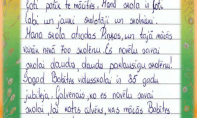 ļoti patīk te mācīties. Mana skola ir ļoti
labi un jauki skolotāji un skolēni.
Mana skola atrodas Piņķos, un tajā mācās
vairāk nekā 700 skolēnu. Es novēlu savai
skolai daudz, daudz paklausīgu skolēnu!
Šogad Babītes vidusskolai ir 35 gadu
jubileja. Galvenais, ko es novēlu savai
skolai, lai katrs cilvēks, kas mācās Babītes